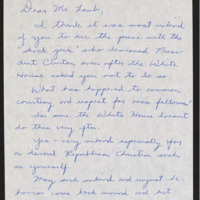 Dear Mr. Lamb,
I think it was most unkind
of you to air the piece with the
"shock jock" who demeaned Presi-
dent Clinton even after the White
House asked you not to do so.
What has happened to common
courtesy and respect for ones fellows?
I'm sure the White House doesn't
do this very often.
Yes - very unkind especially for
a devout Republican Christian such
as yourself.
May such unkind and unjust be-
haviors come back around and